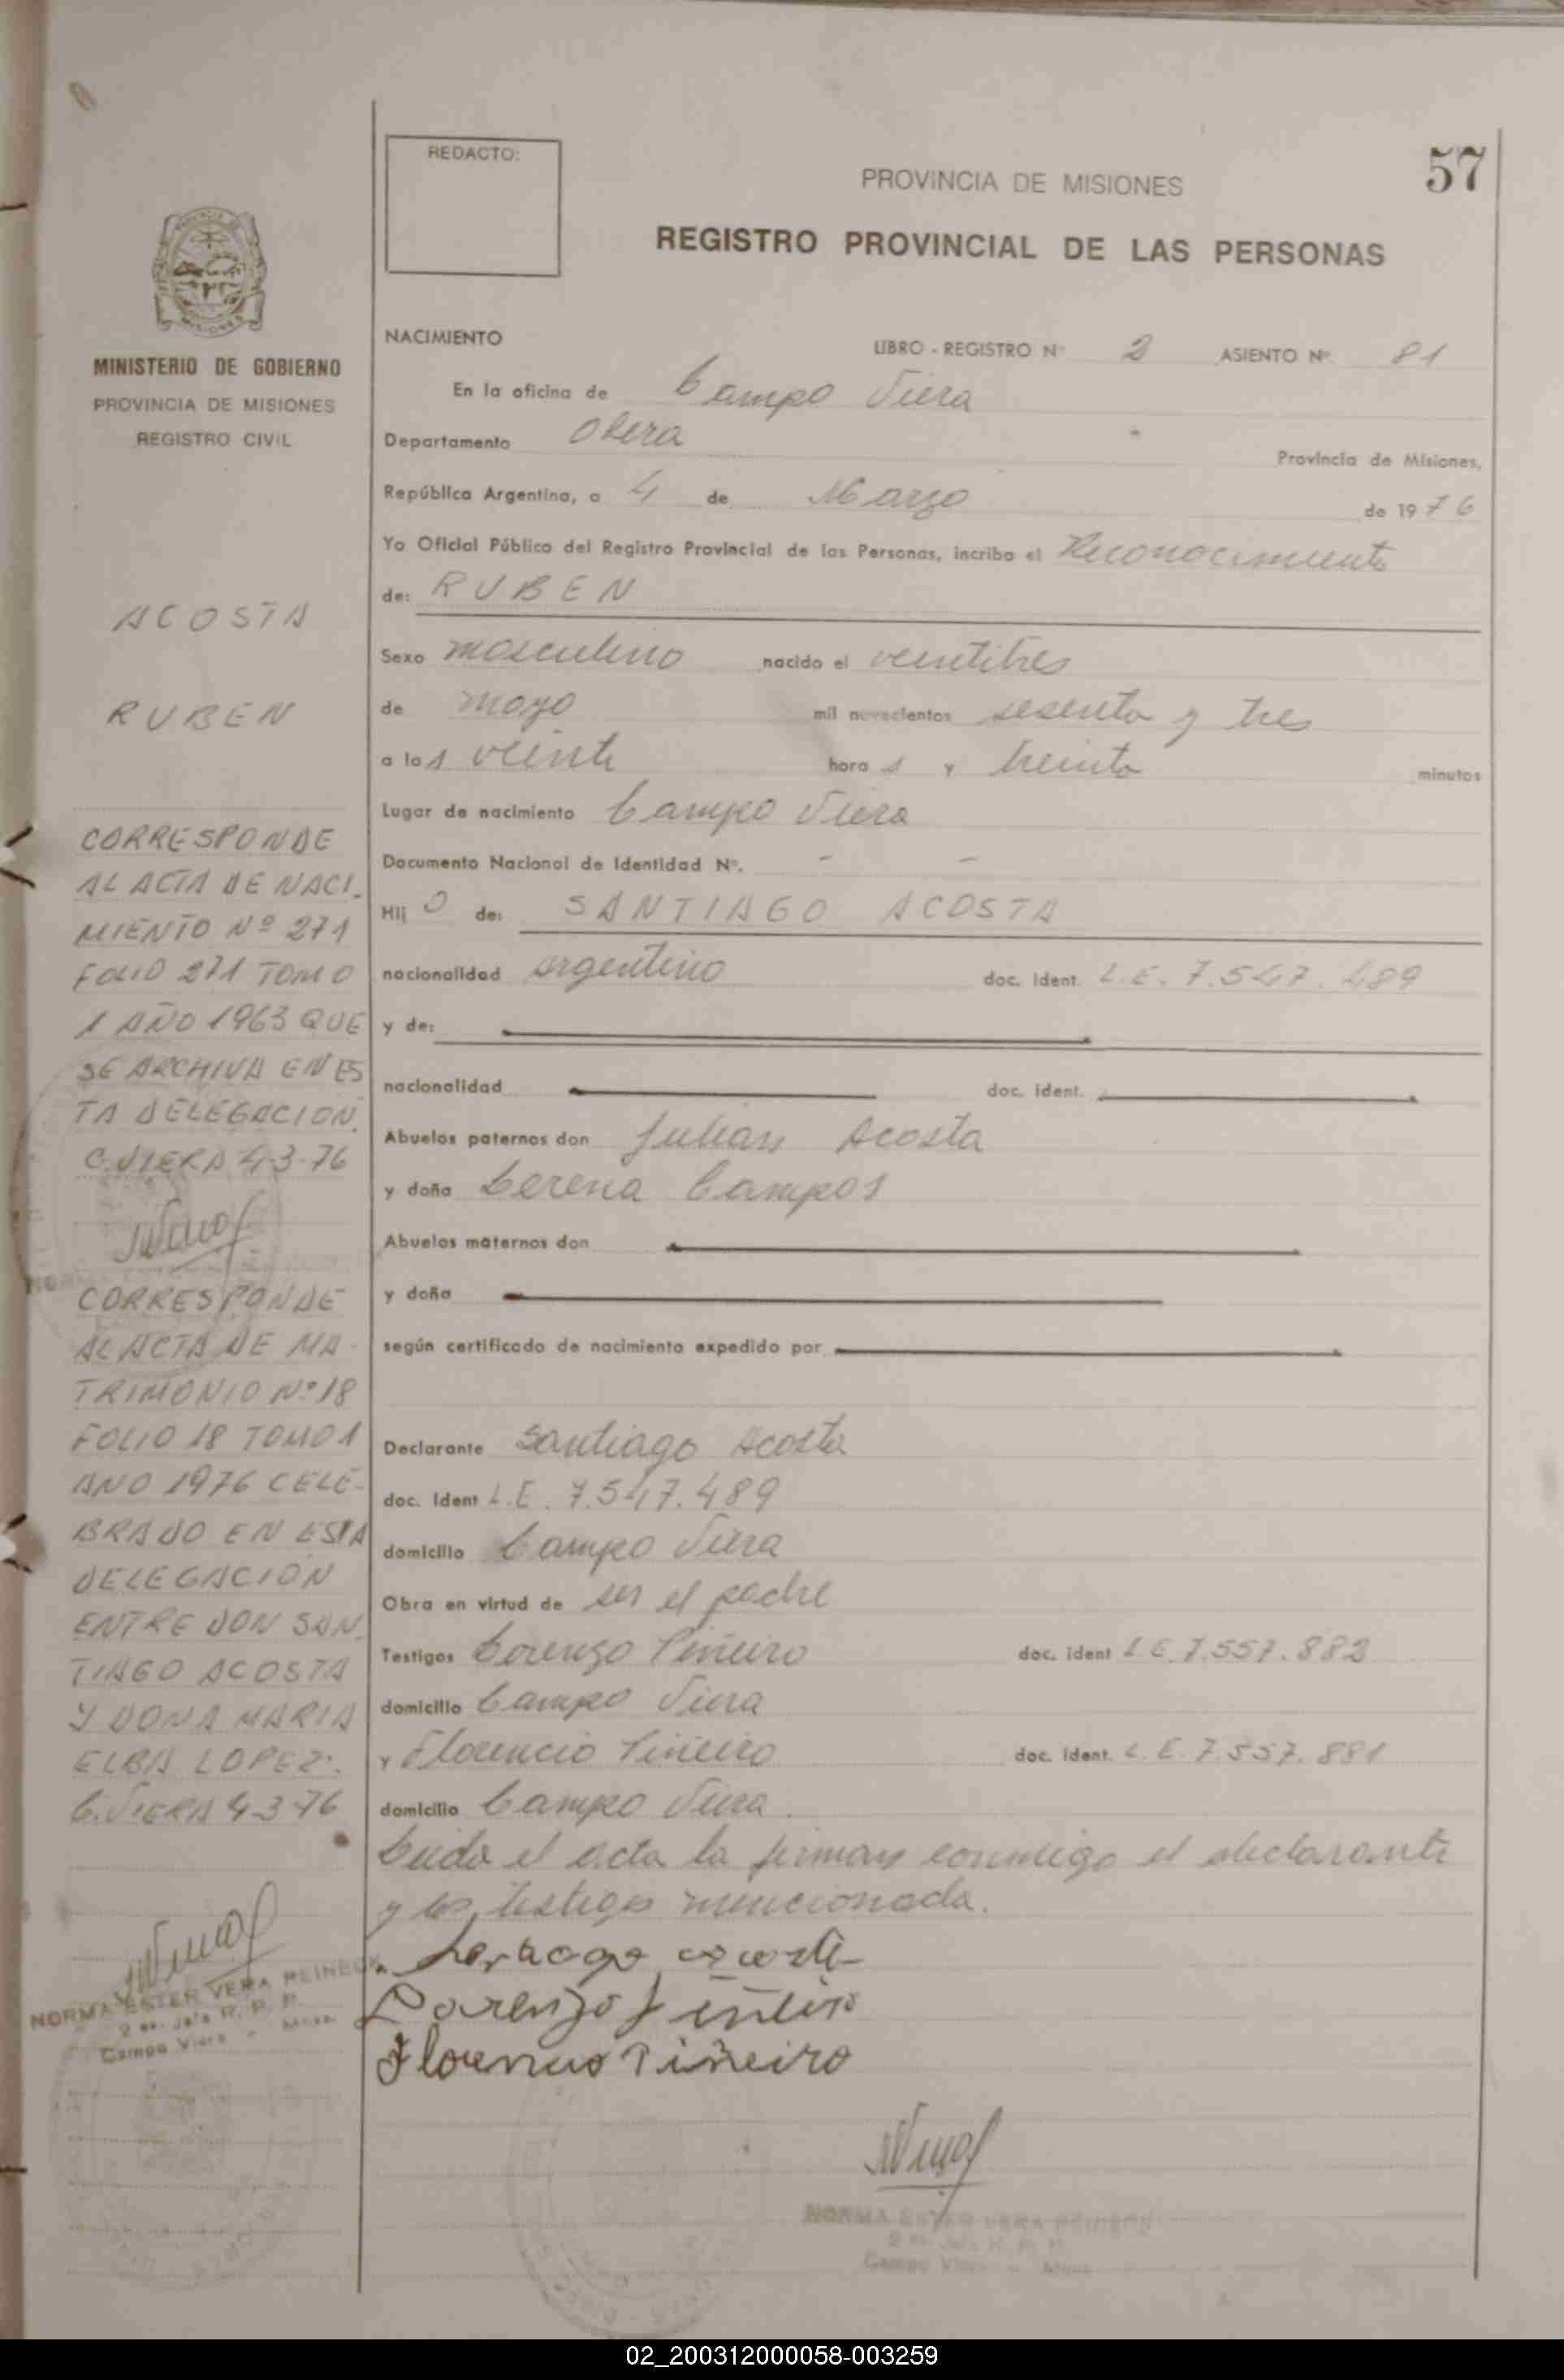 57
REDACTO:
PROVINCIA DE MISIONES
REGISTRO PROVINCIAL DE LAS PERSONAS
MINISTERIO DE GOBIERNO
PROVINCIA DE MISIONES
REGISTRO CIVIL
ACOSTA
RUBEN
CORRESPONDE
AL ACTA DE NACI-
MIENTO Nº 271
FOLIO 271 TOMO
1 AÑO 1963 QUE
SE ARCHIVA EN ES
TA DELEGACION.
C. VIERA 4-3-76
CORRESPONDE
AL ACTA DE MA-
TRIMONIO Nº 18
FOLIO 18 TOMO 1
AÑO 1976 CELE-
BRADO EN ESTA
DELEGACION
ENTRE DON SAN
TIAGO ACOSTA
Y DOÑA MARIA
ELBA LOPEZ.
C. VIERA 4-3-76
NORMA ESTER VERA REINECK
2 Jefe R. P. P.
Campo Viera - Mnes.
NACIMIENTO LIBRO - REGISTRO Nº 2 ASIENTO Nº 81
En la oficina de Campo Viera
Departamento Obera Provincia de Misiones,
República Argentina, a 4 de Marzo de 1976
Yo Oficial Público del Registro Provincial de las Personas, inscribo el Reconocimiento
de: RUBEN
Sexo masculino nacido el veintitres
de mayo mil novecientos sesenta y tres
a las veinte horas y treinta minutos
Lugar de nacimiento Campo Viera
Documento Nacional de Identidad Nº. - -
Hijo de: SANTIAGO ACOSTA
nacionalidad argentino doc. ident. L.E. 7.547.489
y de:
nacionalidad doc. ident.
Abuelos paternos don Julian Acosta
y doña Lerena Campos
Abuelos maternos don
y doña
según certificado de nacimiento expedido por
Declarante Santiago Acosta
doc. Ident L.E. 7.547.489
domicilio Campo Viera
Obra en virtud de ser el padre
Testigos Lorenzo Piñeiro doc. ident L.E. 7.557.882
domicilio Campo Viera
y Florencio Piñeiro doc. ident. L.E. 7.557.881
domicilio Campo Viera.
Leida el acta la firman conmigo el declarante
y los testigos mencionada.
Lorenzo Piñeiro
Florencio Piñeiro
NORMA ESTER VERA REINECK
2 Jefe R. P. P.
Campo Viera - Mnes.
02_200312000058-003259